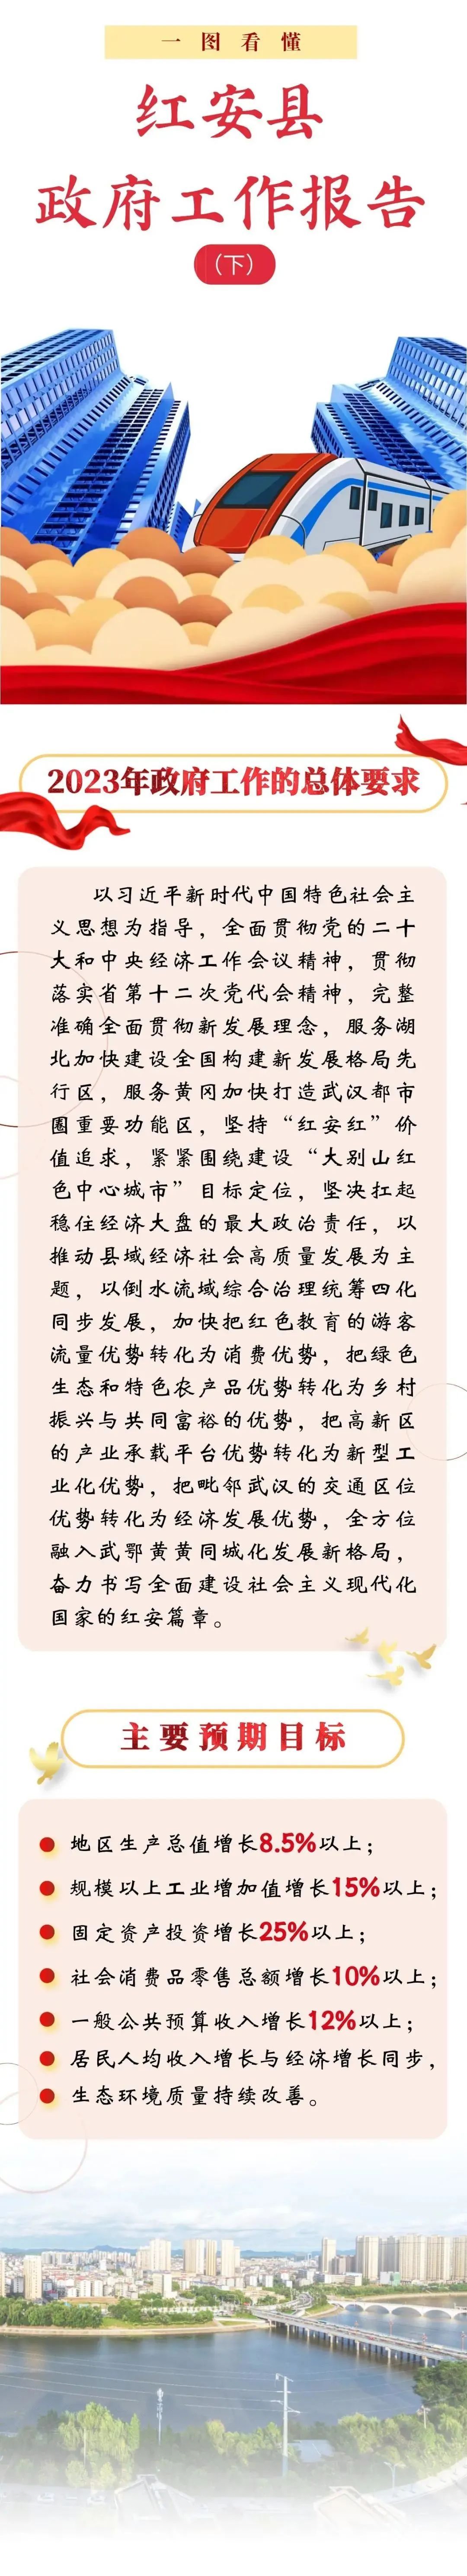 一图看懂
红安县
政府工作报告
（下）
2023年政府工作的总体要求
以习近平新时代中国特色社会主
义思想为指导，全面贯彻党的二十
大和中央经济工作会议精神，贯彻
落实省第十二次党代会精神，完整
准确全面贯彻新发展理念，服务湖
北加快建设全国构建新发展格局先
行区，服务黄冈加快打造武汉都市
圈重要功能区，坚持“红安红”价
值追求，紧紧围绕建设“大别山红
色中心城市”目标定位，坚决扛起
稳住经济大盘的最大政治责任，以
推动县域经济社会高质量发展为主
题，以倒水流域综合治理统筹四化
同步发展，加快把红色教育的游客
流量优势转化为消费优势，把绿色
生态和特色农产品优势转化为乡村
振兴与共同富裕的优势，把高新区
的产业承载平台优势转化为新型工
业化优势，把毗邻武汉的交通区位
优势转化为经济发展优势，全方位
融入武鄂黄黄同城化发展新格局，
奋力书写全面建设社会主义现代化
国家的红安篇章。
主要预期目标
地区生产总值增长8.5%以上；
规模以上工业增加值增长15%以上；
固定资产投资增长25%以上；
社会消费品零售总额增长10%以上；
一般公共预算收入增长12%以上；
居民人均收入增长与经济增长同步，
生态环境质量持续改善。